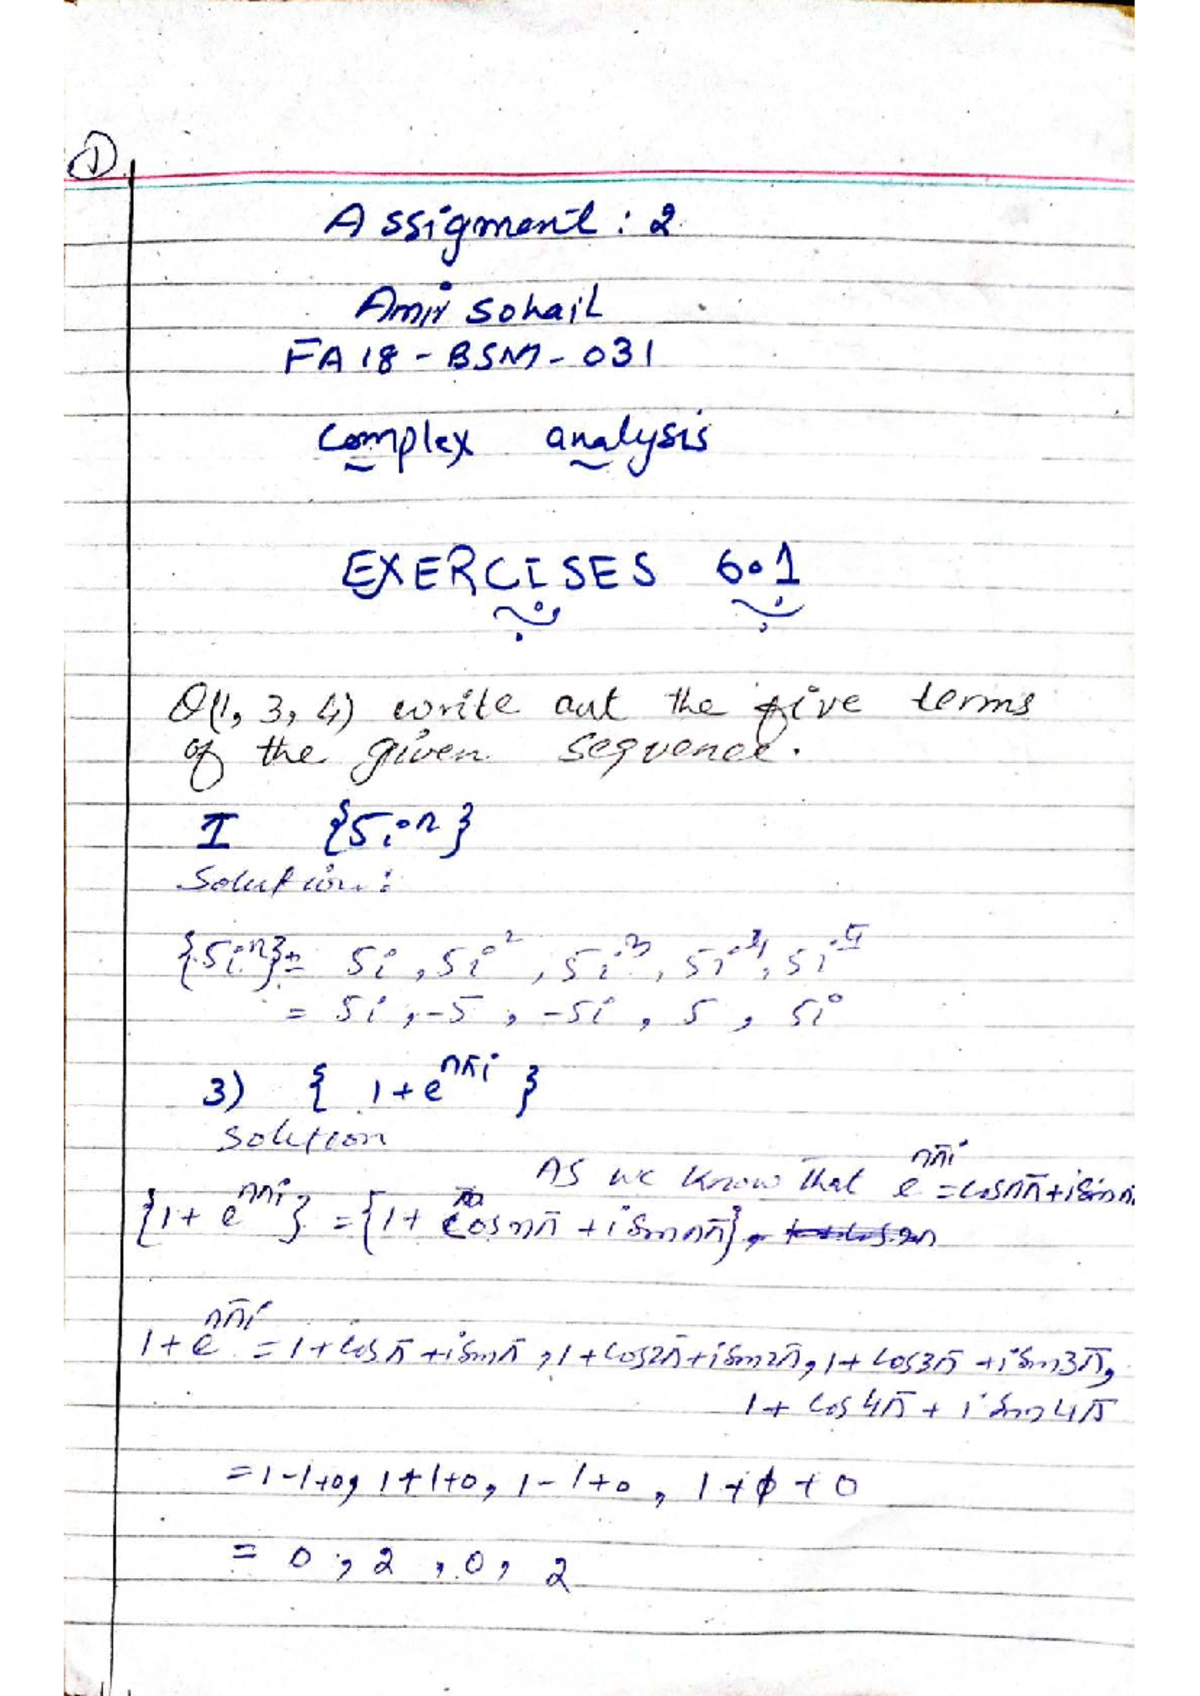 ①
Assigment: 2
Amir Sohail
FA18-BSM-031
Complex analysis
EXERCISES 6.1
Q(1, 3, 4) write out the five terms
of the given sequence.
I {5iⁿ}
Solution:
{5iⁿ} = 5i, 5i², 5i³, 5i⁴, 5i⁵
= 5i, -5, -5i, 5, 5i
3) { 1+e^nπi }
Solution
As we know that e^nπi = cosnπ+isinn
{1+e^nπi} = {1+ cosnπ + isinnπ},
1+e^nπi = 1+cosπ+isinπ, 1+cos2π+isin2π, 1+cos3π+isin3π,
1+ cos4π + isin4π
= 1-1+0, 1+1+0, 1-1+0, 1+1+0
= 0, 2, 0, 2